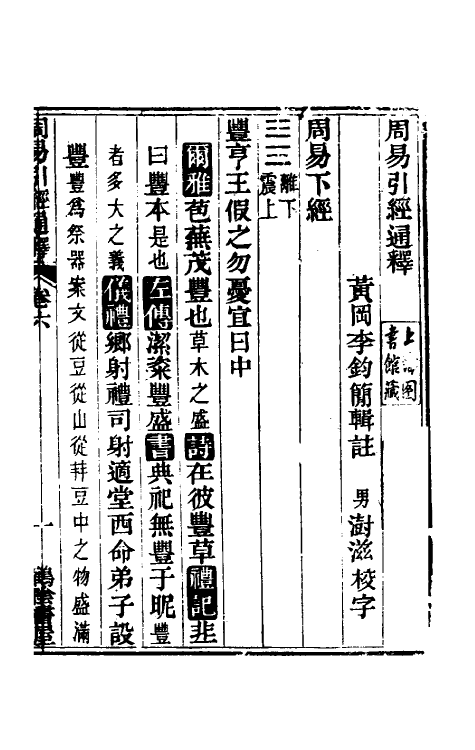 周易引經通釋
黃岡李鈞簡輯註 男澍滋校字
周易下經
離下
震上
豐亨王假之勿憂宜日中
爾雅苞蕪茂豐也草木之盛詩在彼豐草禮記韭
曰豐本是也左傳潔粢豐盛書典祀無豐于昵豐
者多大之義儀禮鄉射禮司射適堂西命弟子設
豐豐爲祭器案文從豆從山從丰豆中之物盛滿
周易引經通釋 卷六 一
上 圖
書館藏